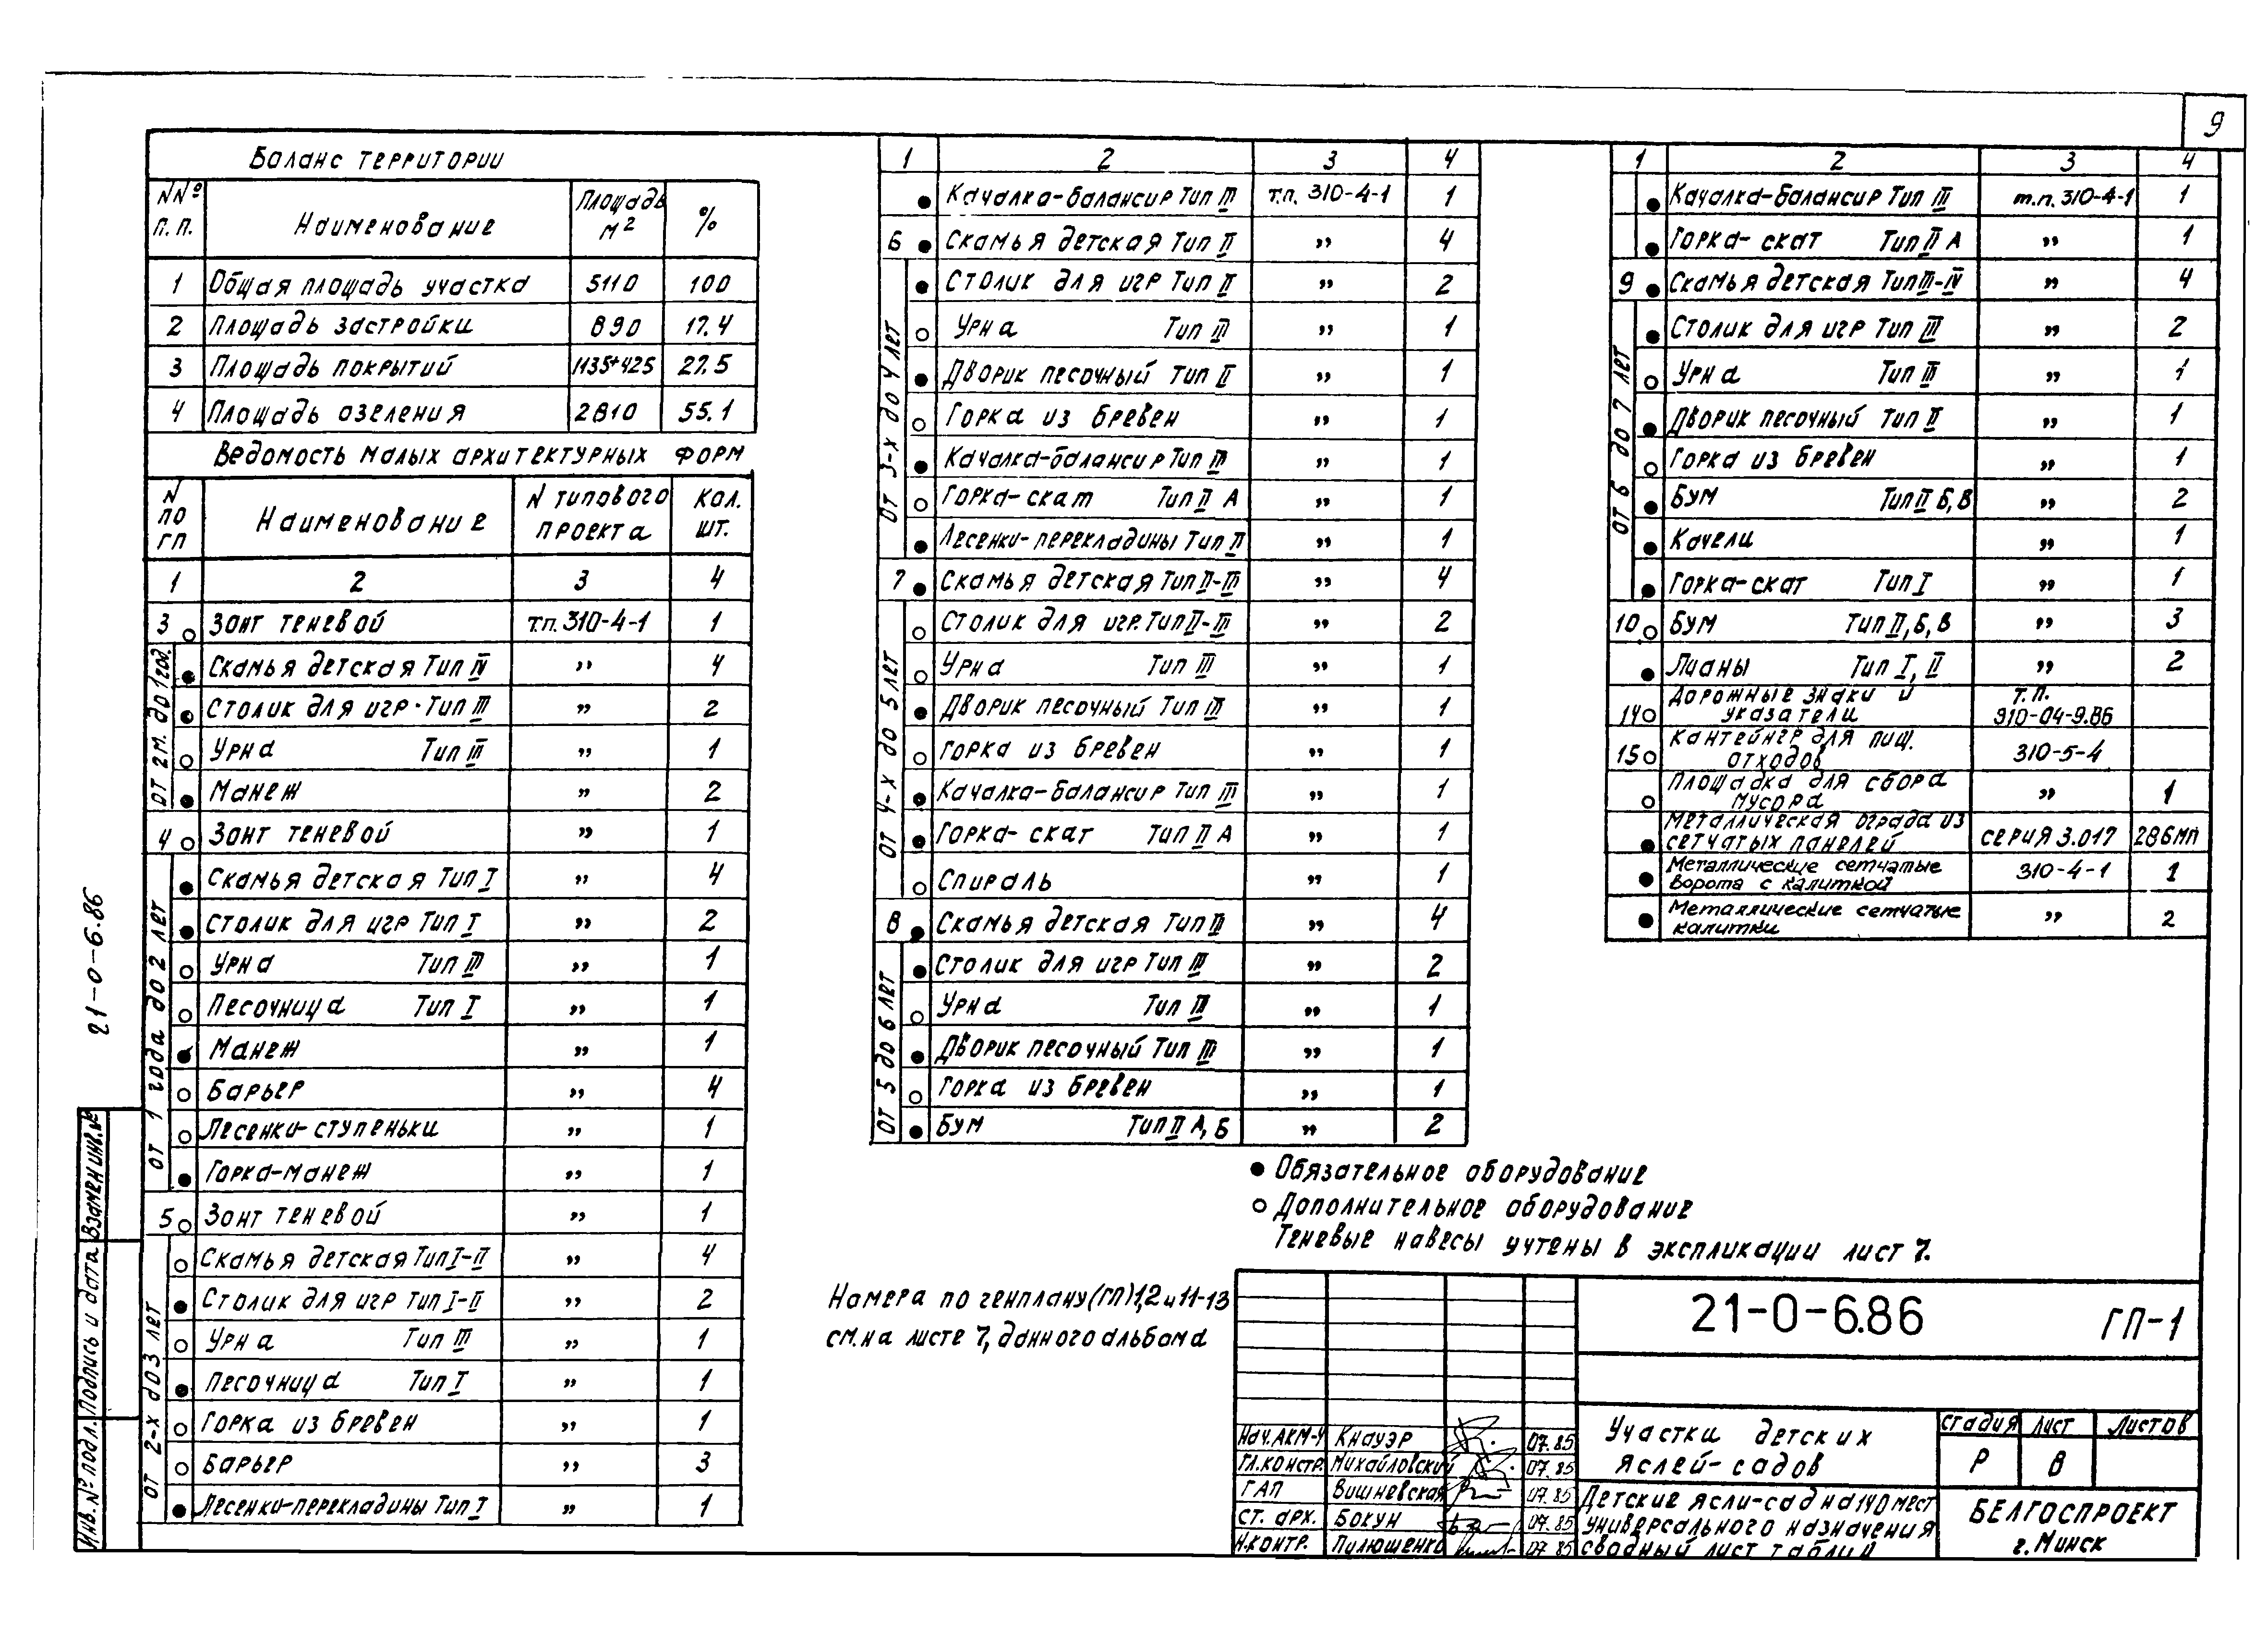 9
Баланс территории
NNº п.п. Наименование Площадь м2 %
1 Общая площадь участка 5110 100
2 Площадь застройки 890 17.4
3 Площадь покрытий 1135+425 27.5
4 Площадь озеления 2810 55.1
Ведомость малых архитектурных форм
N по ГП Наименование N типового проекта Кол. шт.
1 2 3 4
3 ○ Зонт теневой т.п. 310-4-1 1
от 2 м. до 1 год.
● Скамья детская Тип IV „ 4
● Столик для игр. Тип III „ 2
○ Урна Тип III „ 1
● Манеж „ 2
4 ○ Зонт теневой „ 1
от 1 года до 2 лет
● Скамья детская Тип I „ 4
● Столик для игр Тип I „ 2
○ Урна Тип III „ 1
○ Песочница Тип I „ 1
● Манеж „ 1
○ Барьер „ 4
○ Лесенки-ступеньки „ 1
● Горка-манеж „ 1
5 ○ Зонт теневой „ 1
от 2-х до 3 лет
○ Скамья детская Тип I-II „ 4
● Столик для игр Тип I-II „ 2
○ Урна Тип III „ 1
● Песочница Тип I „ 1
○ Горка из бревен „ 1
○ Барьер „ 3
● Лесенки-перекладины Тип I „ 1
1 2 3 4
● Качалка-балансир Тип III т.п. 310-4-1 1
6 ● Скамья детская Тип II „ 4
от 3-х до 4 лет
● Столик для игр Тип II „ 2
○ Урна Тип III „ 1
● Дворик песочный Тип II „ 1
○ Горка из бревен „ 1
● Качалка-балансир Тип III „ 1
○ Горка-скат Тип II А „ 1
● Лесенки-перекладины Тип II „ 1
7 ● Скамья детская Тип II-III „ 4
от 4-х до 5 лет
○ Столик для игр. Тип II-III „ 2
○ Урна Тип III „ 1
● Дворик песочный Тип III „ 1
○ Горка из бревен „ 1
● Качалка-балансир Тип III „ 1
● Горка-скат Тип II А „ 1
○ Спираль „ 1
8 ● Скамья детская Тип III „ 4
от 5 до 6 лет
● Столик для игр Тип III „ 2
○ Урна Тип III „ 1
● Дворик песочный Тип III „ 1
○ Горка из бревен „ 1
● Бум Тип II А, Б „ 2
1 2 3 4
● Качалка-балансир Тип III т.п. 310-4-1 1
● Горка-скат Тип II А „ 1
9 ● Скамья детская Тип III-IV „ 4
от 6 до 7 лет
● Столик для игр Тип III „ 2
○ Урна Тип III „ 1
● Дворик песочный Тип II „ 1
○ Горка из бревен „ 1
● Бум Тип II Б, В „ 2
● Качели „ 1
● Горка-скат Тип I „ 1
10 ○ Бум Тип II, Б, В „ 3
● Лианы Тип I, II „ 2
14 ○ Дорожные знаки и указатели т.п. 310-04-9.86
15 ○ Кантейнер для пищ. отходов 310-5-4
○ Площадка для сбора мусора „ 1
● Металлическая ограда из сетчатых панелей серия 3.017 286мп
● Металлические сетчатые ворота с калиткой 310-4-1 1
● Металлические сетчатые калитки „ 2
● Обязательное оборудование
○ Дополнительное оборудование
Теневые навесы учтены в экспликации лист 7.
Номера по генплану (ГП) 1,2 и 11-13
см. на листе 7, данного альбома
21-0-6.86
Взамен инв.№
Подпись и дата
Инв. № подл.
21-0-6.86 ГП-1
Нач.АКМ-4 Кнауэр 07.85
Гл.констр. Михайловский 07.85
ГАП Вишневская 07.85
Ст. арх. Бокун 07.85
Н.контр. Пилюшенко 07.85
Участки детских
яслей-садов
Стадия Лист Листов
Р 8
Детские ясли-сад на 140 мест
универсального назначения
сводный лист таблиц
БЕЛГОСПРОЕКТ
г. Минск